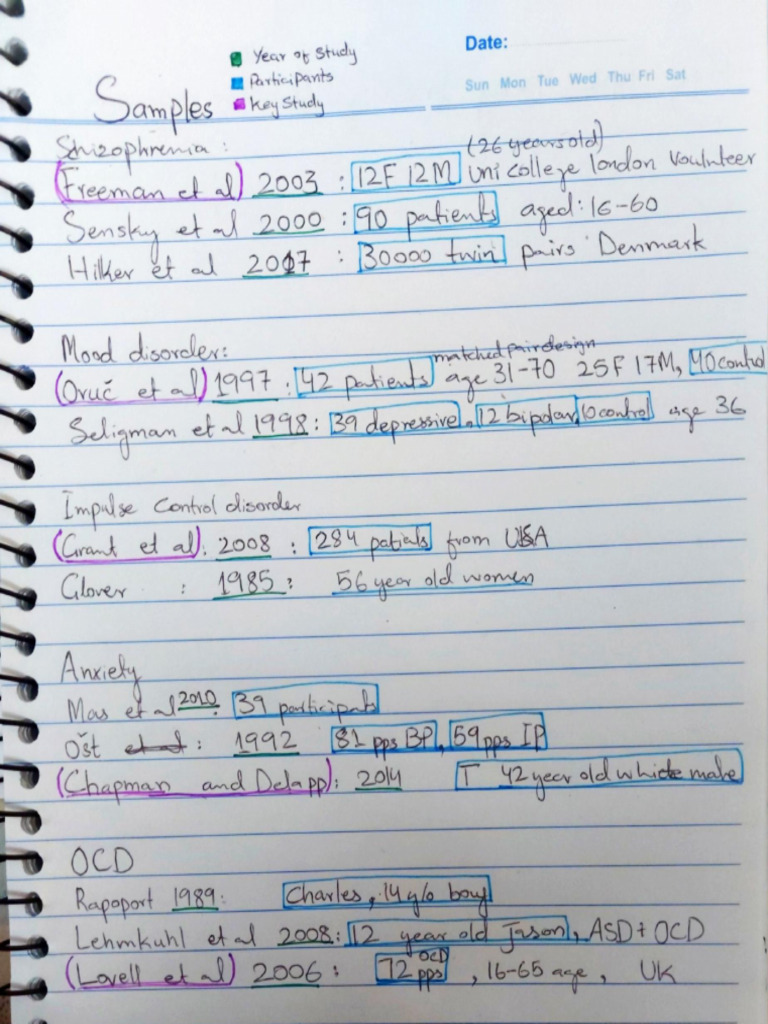 Year of Study
Date:
Participants
Key Study
Sun Mon Tue Wed Thu Fri Sat
Samples
Shizophrenia :
(26 years old)
(Freeman et al) 2003 : 12F 12M uni college london Voulnteer
Sensky et al 2000 : 90 patients aged: 16-60
Hilker et al 2017 : 30000 twin pairs Denmark
Mood disorder:
matched pair design
(Oruč et al) 1997 : 42 patients age 31-70 25F 17M, 40 control
Seligman et al 1998: 39 depressive, 12 bipolar, 10 control age 36
Impulse Control disorder
(Grant et al): 2008 : 284 patials from USA
Glover : 1985 : 56 year old women
Anxiety
Mas et al 2010: 39 participats
Ošt et al : 1992 81 pps BP, 59 pps IP
(Chapman and Delapp): 2014 T 42 year old white make
OCD
Rapoport 1989: Charles, 14 y/o boy
Lehmkuhl et al 2008: 12 year old Jason, ASD + OCD
(Lovell et al) 2006 : 72 OCD pps, 16-65 age, UK